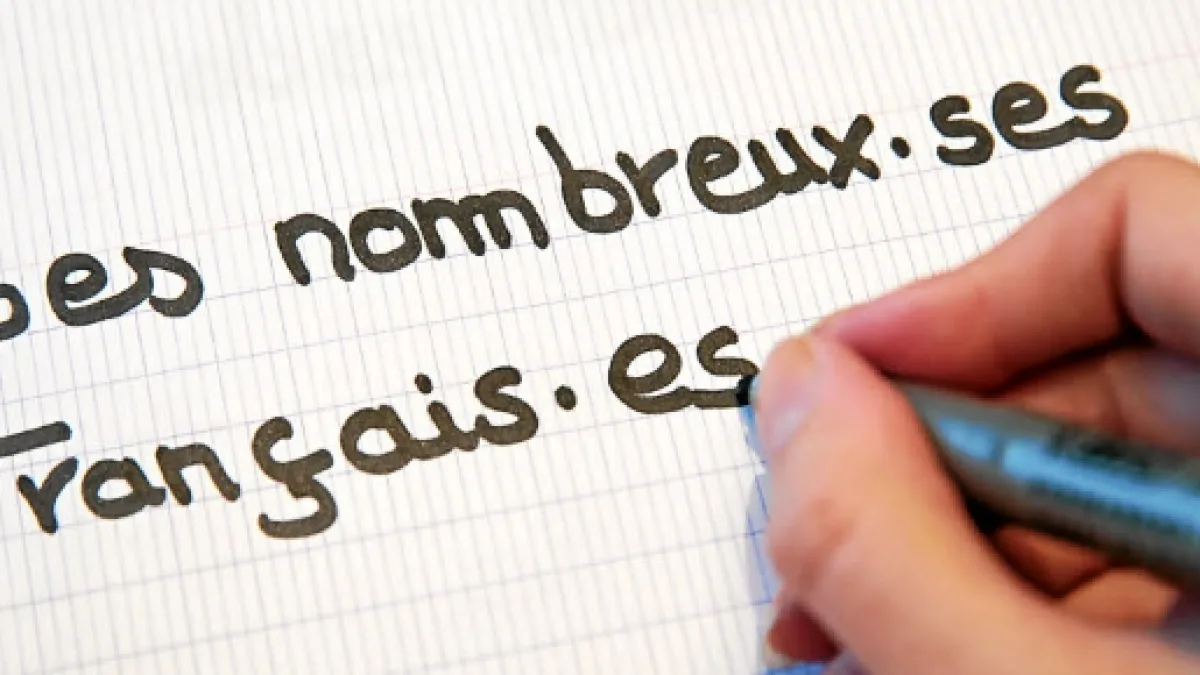 es nombreux·ses
Français·es